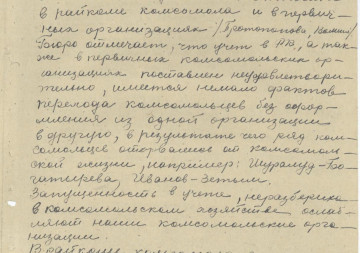 в райкоме комсомола и в первич-
ных организациях /Протопопова,
Бюро отмечает, что учет в РК, а так-
же в первичных комсомольских ор-
ганизациях поставлен неудовлетвори-
тельно, имеется немало фактов
перехода комсомольцев без офор-
мления из одной организации
в другую, в результате чего ряд ком-
сомольцев оторвались от комсомоль-
ской жизни, например:
Иванов-
Запущенность в учете, неразбериха
в комсомольском хозяйстве ослаб-
ляют наши комсомольские орга-
низации.
В райкоме